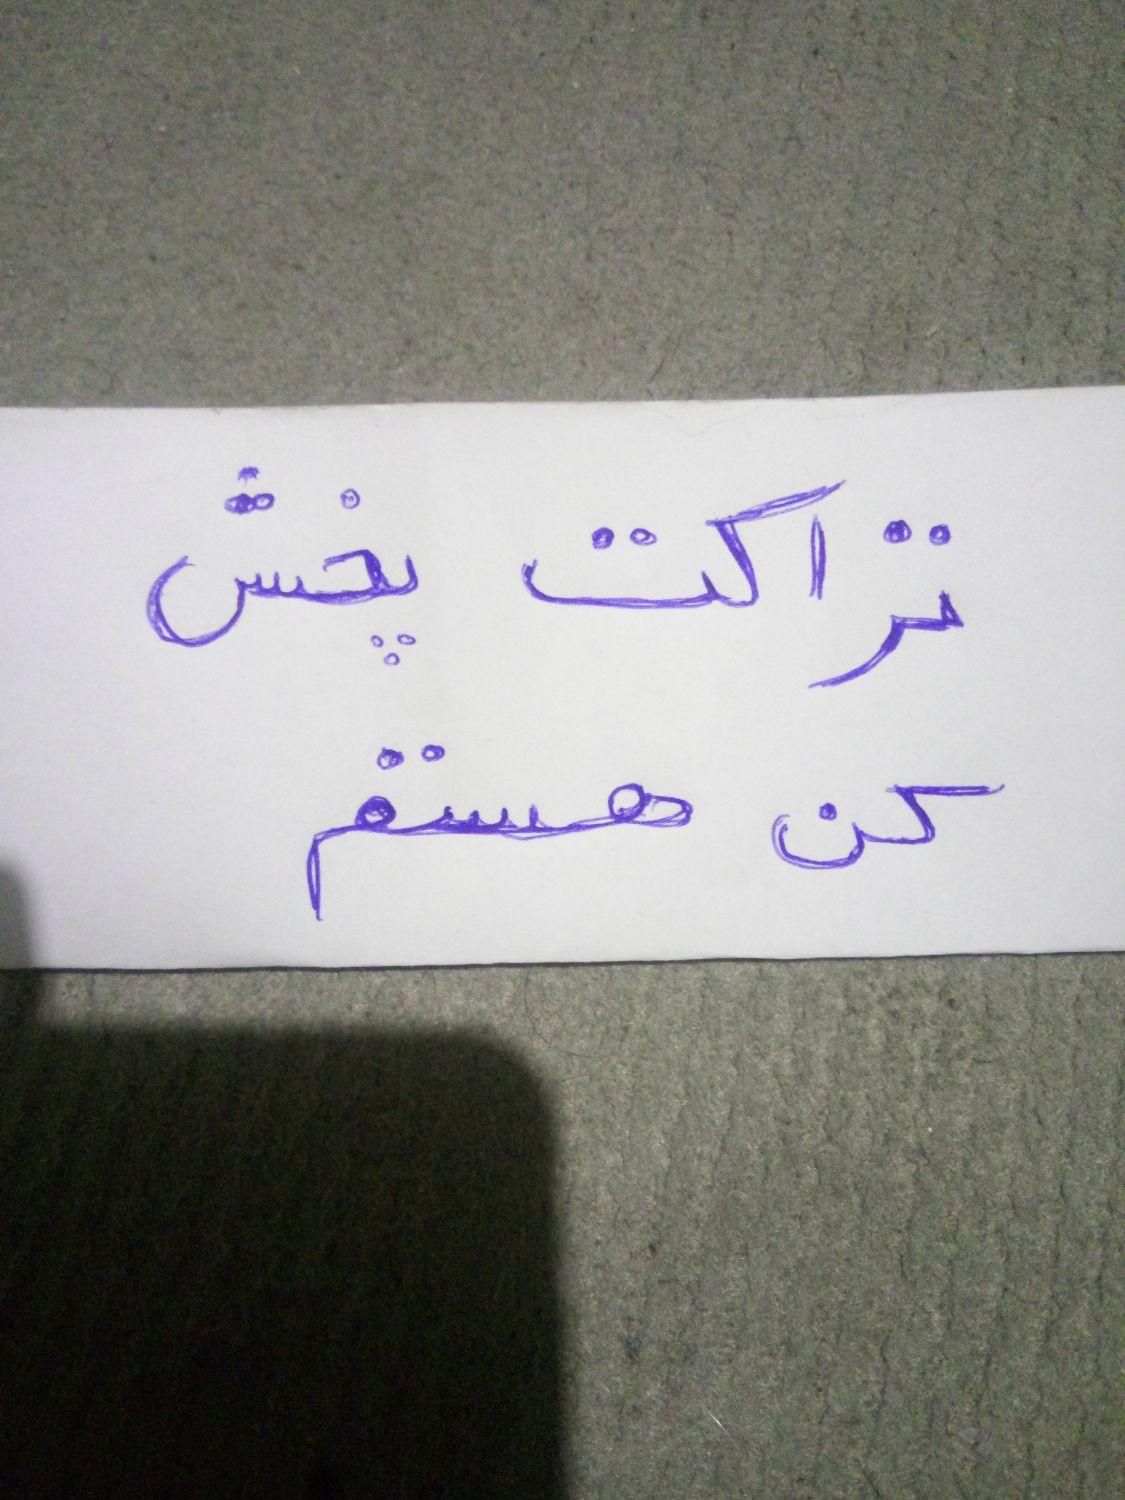 تراکت پخش
کن هستم